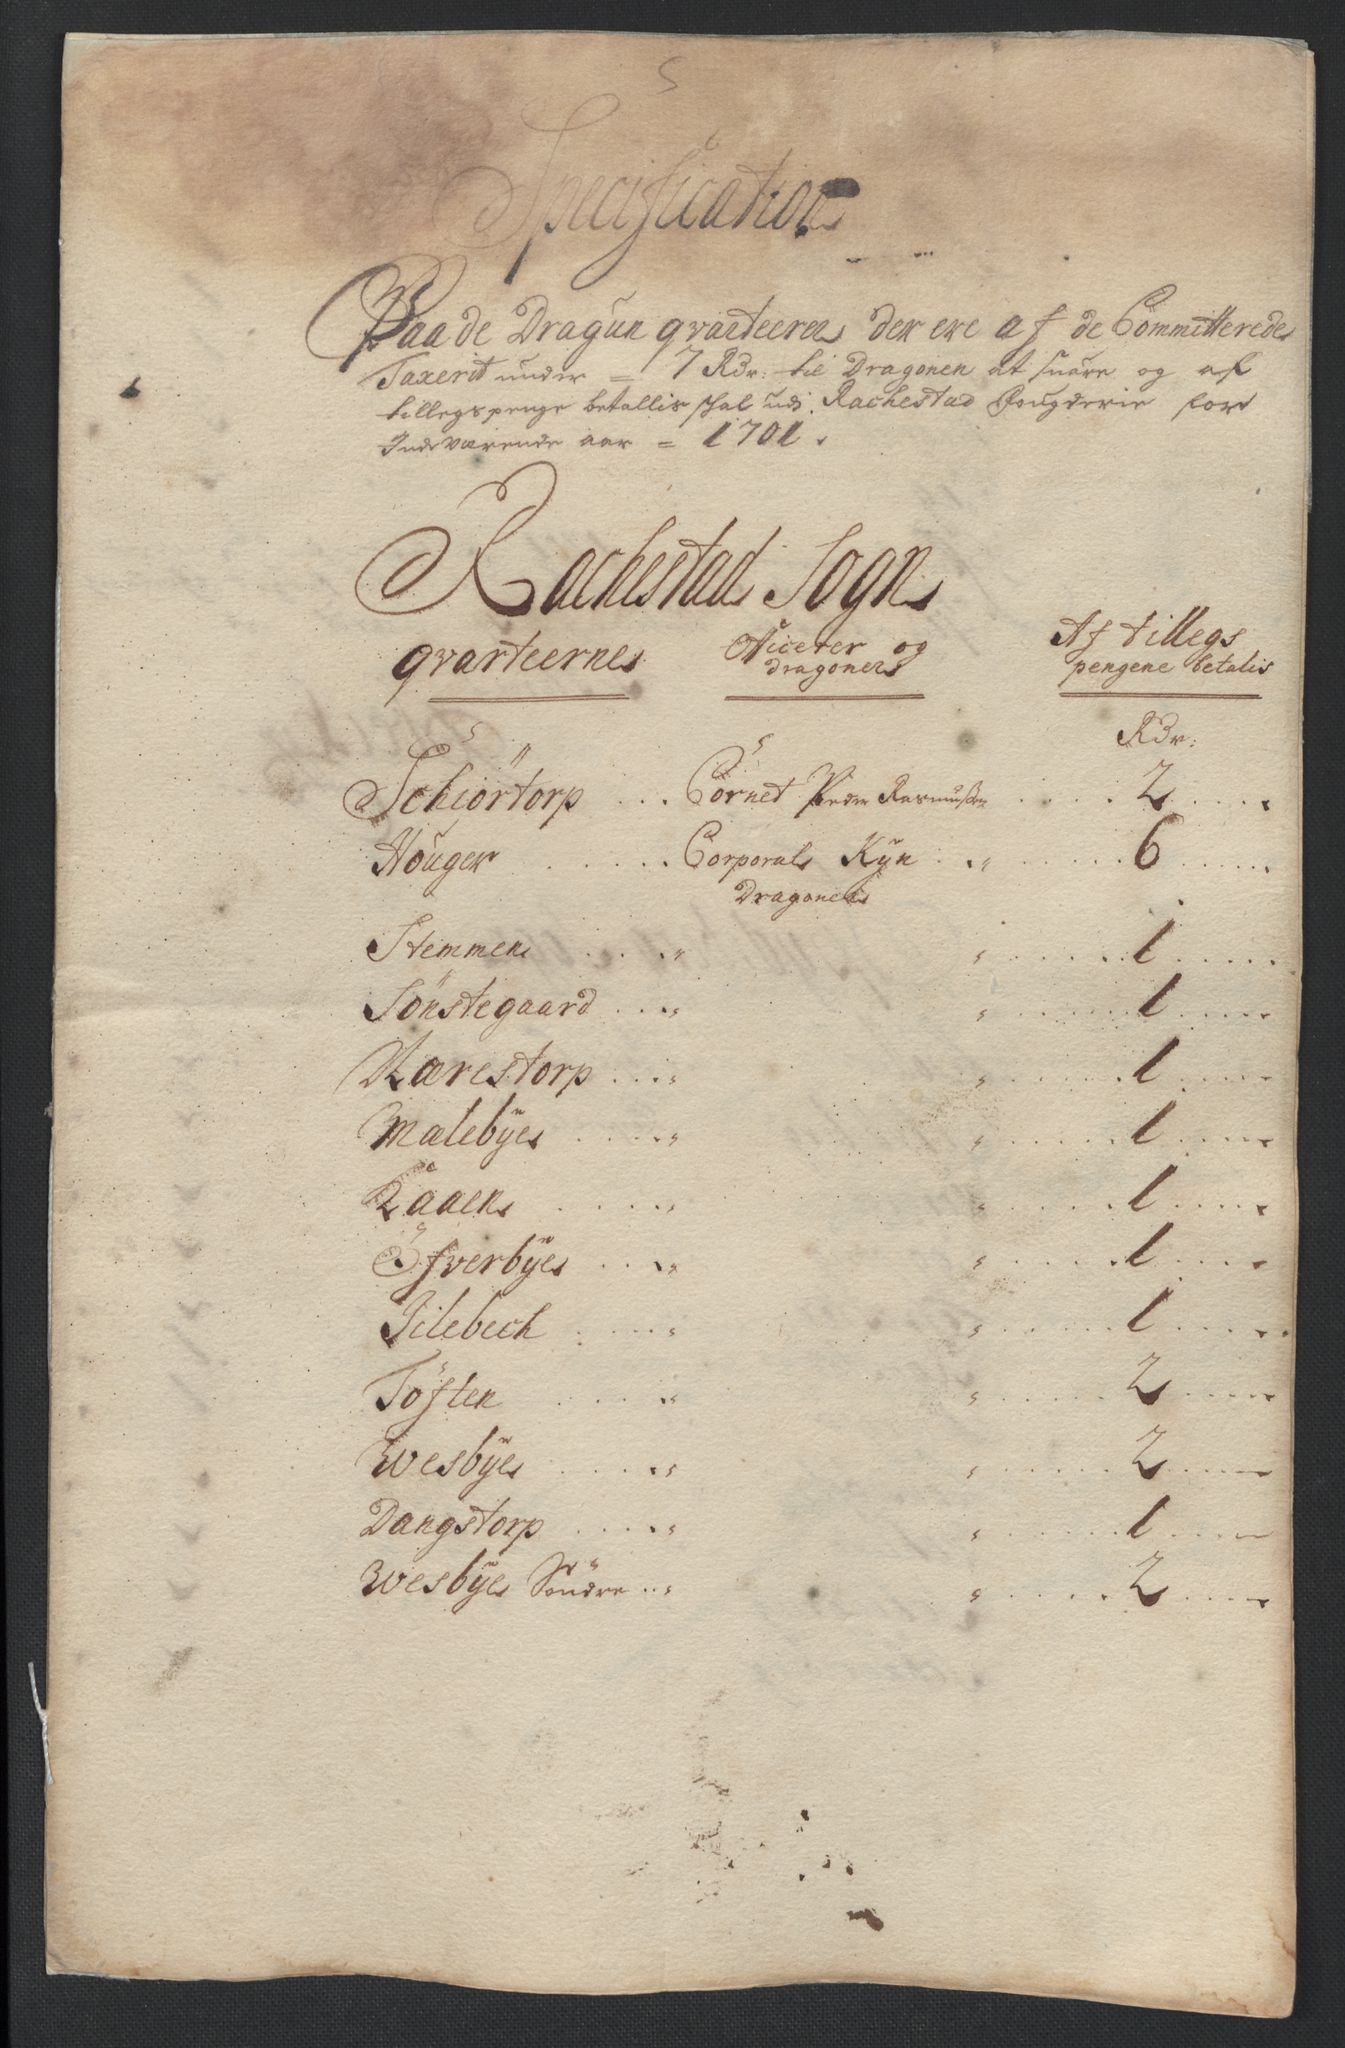 Specification
Paa de Dragun qvarteerer der ere af de Committerede
Taxerit under = 7 Rdr: til Dragonen at suare og af
tillegspenge betallis schal udi Rachestad fougderie for
Indeværende aar = 1701.
Rachestad Sogn
qvarteerne Officerer og dragoner Af tillegs pengene betalis
Rdr:
Schiörtorp . . . Cornet Peder Rasmußen . . . . 2 . . .
Houger . . . . . Corporal Kyn . . " . . . . . 6 . . . .
Dragoner
Stemmen . . . . " " . . . . . 1 . . . .
Sönstegaard . . . " " . . . . . 1 . . . .
Kærestorp . . . " " . . . . . 1 . . . .
Malebÿe . . . . " " . . . . . 1 . . . .
Raaen . . . . " " . . . . . 1 . . . .
Öfverbÿe . . . " " . . . . . 1 . . . .
Filebech . . . . " " . . . . . 1 . . . .
Töften . . . . " " . . . . . 2 . . . .
Wesbÿe . . . . " " . . . . . 2 . . . .
Dangstorp . . . . " " . . . . . 1 . . . .
Wesbÿe Söndre . . " " . . . . . 2 . . . .